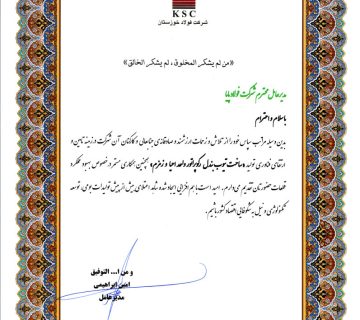 KSC
شرکت فولاد خوزستان
«من لم یشکر المخلوق، لم یشکر الخالق»
مدیرعامل محترم شرکت فولادپایا
با سلام و احترام
بدین وسیله مراتب سپاس خود را از تلاش و زحمات ارزشمند و صادقانه‌ی جنابعالی و کارکنان آن شرکت در زمینه تامین و
ارتقای فناوری تولید «ساخت تیوب باندل رکوپراتور واحد احیا و زمزم» و همچنین همکاری مستمر در خصوص بهبود عملکرد
قطعات حضورتان تقدیم می‌دارم. امید است با هم افزایی ایجاد شده شاهد اعتلای بیش از پیش تولیدات بومی، توسعه
تکنولوژی و نیل به شکوفایی اقتصاد کشور باشیم.
و من ا... التوفیق
امین ابراهیمی
مدیرعامل